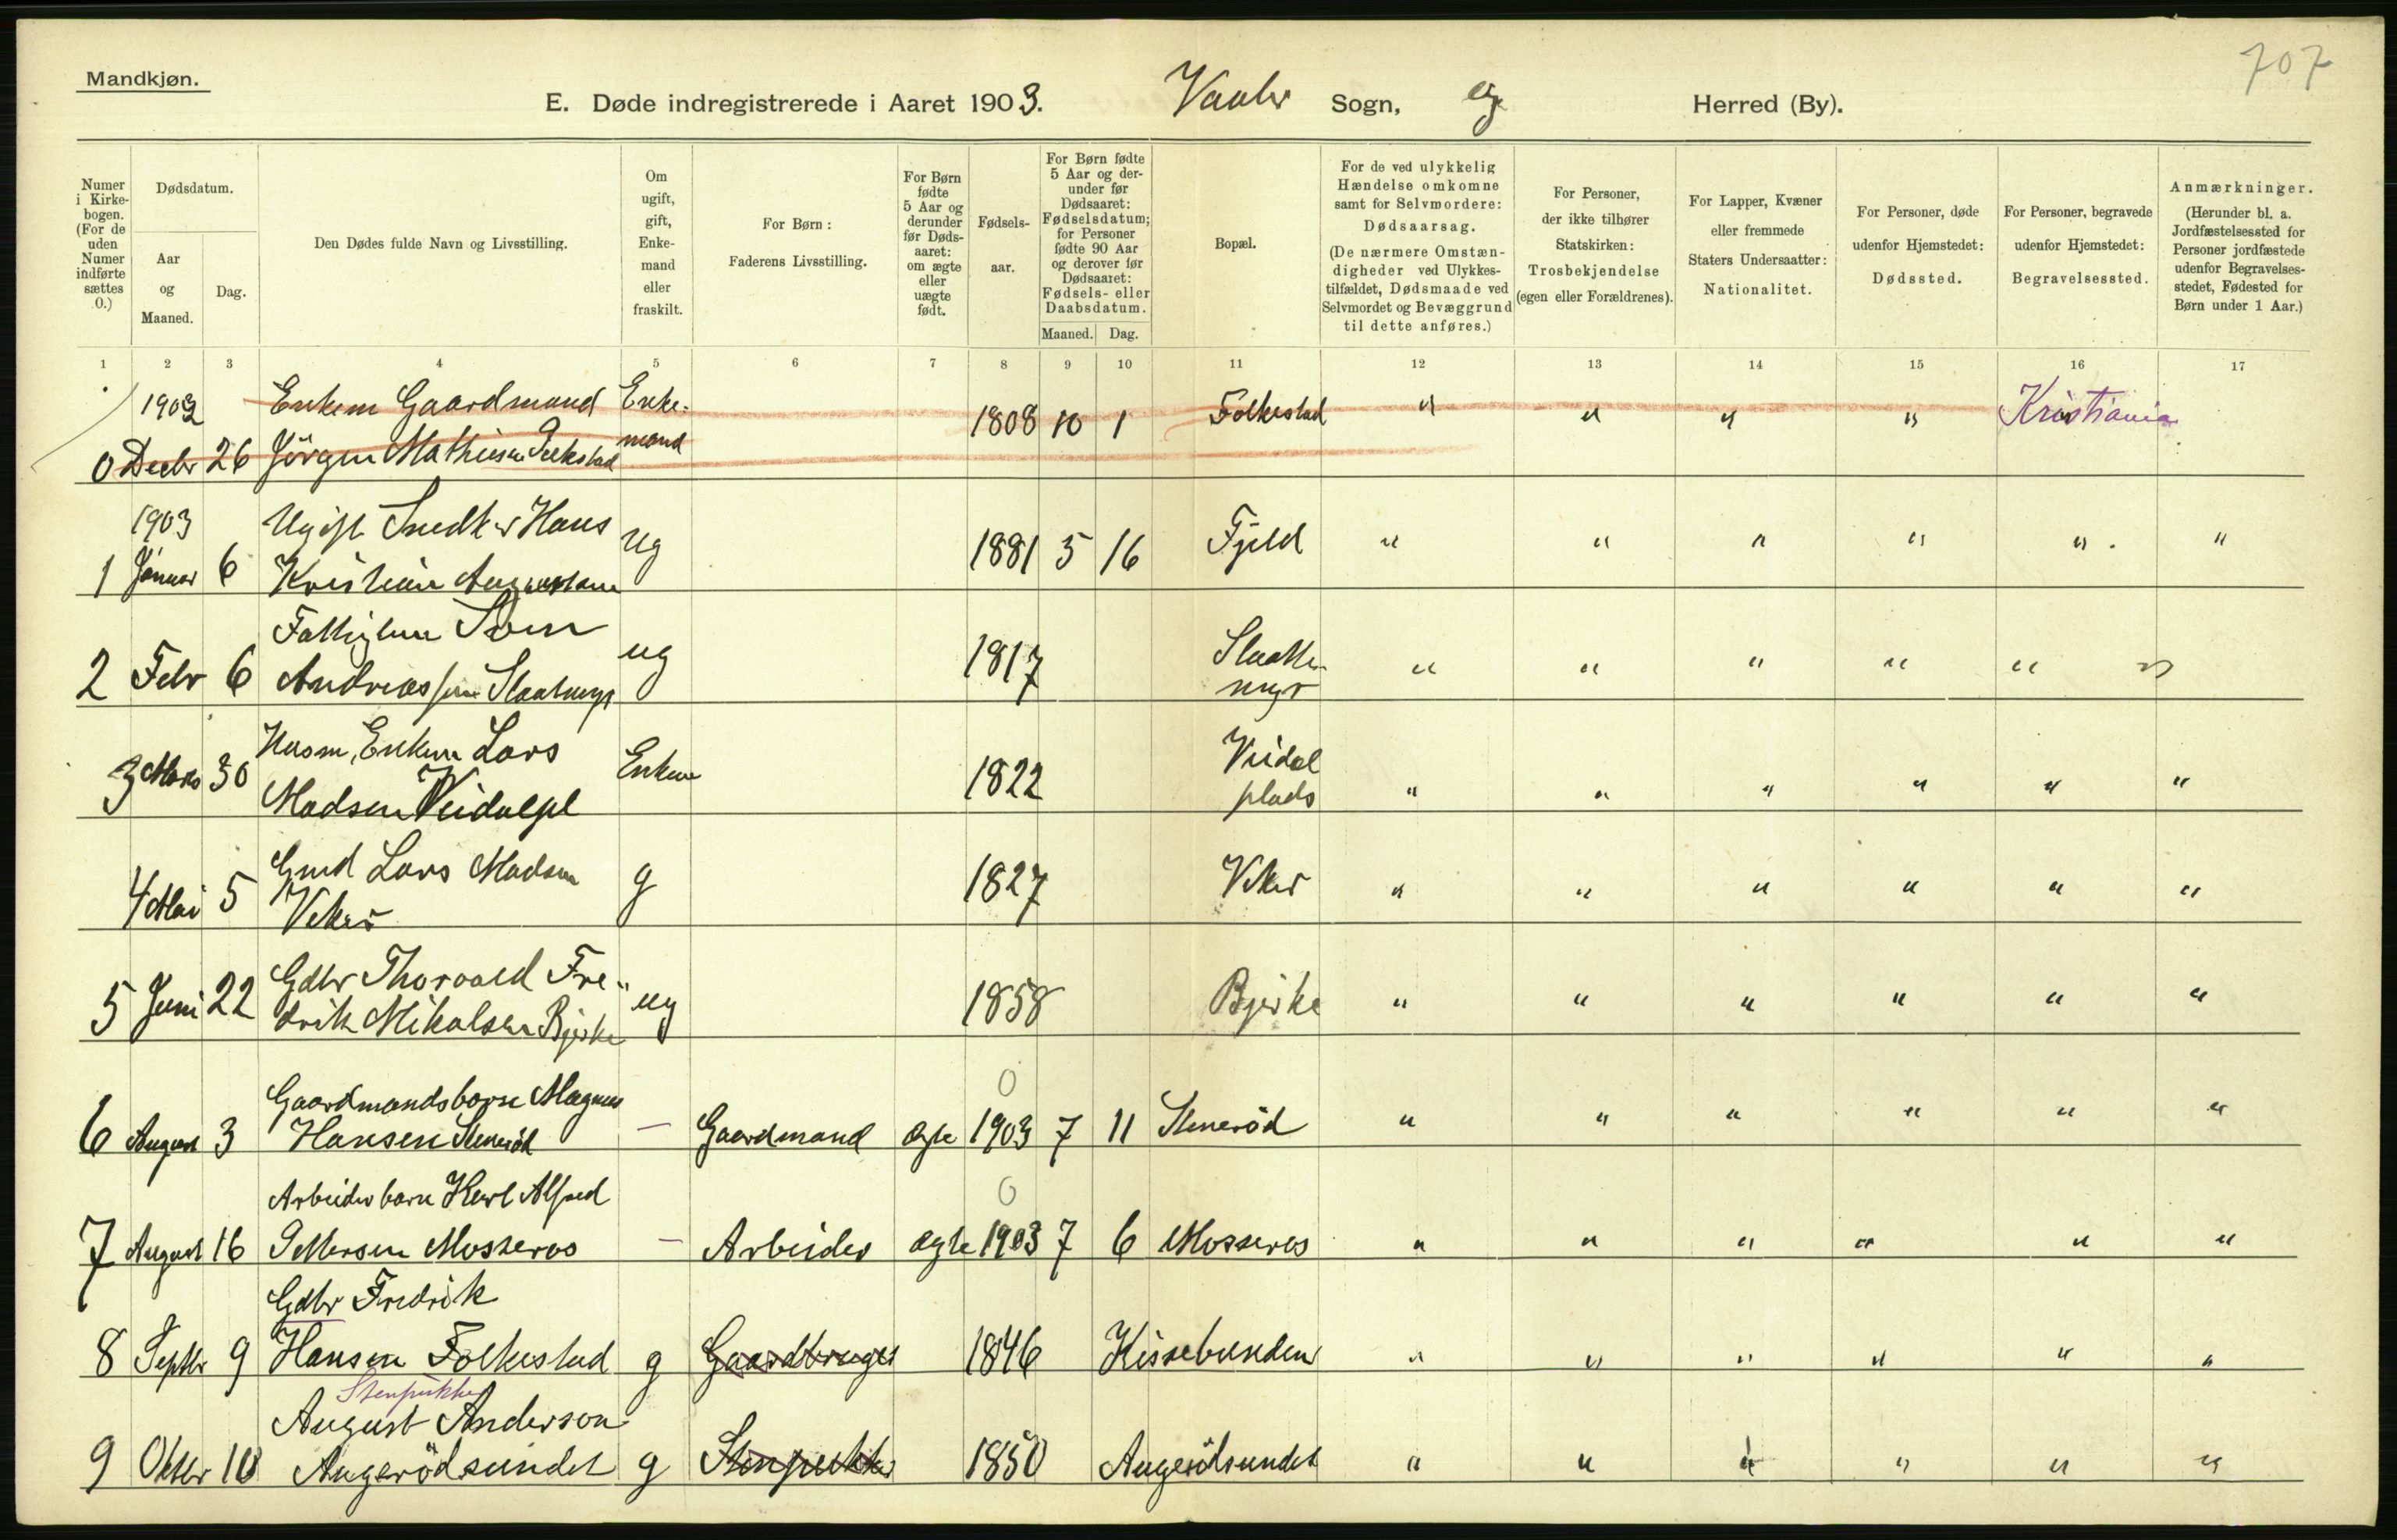 707
Mandkjøn.
E. Døde indregistrerede i Aaret 1903. Vaaler Sogn, og Herred (By).
Numer i Kirke-bogen. (For de uden Numer indførte sættes 0.)
Dødsdatum.
Aar og Maaned.
Dag.
Den Dødes fulde Navn og Livsstilling.
Om ugift, gift, Enke-mand eller fraskilt.
For Børn: Faderens Livsstilling.
For Børn fødte 5 Aar og derunder før Døds-aaret: om ægte eller uægte født.
Fødsels-aar.
For Børn fødte 5 Aar og der-under før Dødsaaret: Fødselsdatum; for Personer fødte 90 Aar og derover før Dødsaaret: Fødsels- eller Daabsdatum.
Maaned. Dag.
Bopæl.
For de ved ulykkelig Hændelse omkomne samt for Selvmordere: Dødsaarsag. (De nærmere Omstæn-digheder ved Ulykkes-tilfældet, Dødsmaade ved Selvmordet og Bevæggrund til dette anføres.)
For Personer, der ikke tilhører Statskirken: Trosbekjendelse (egen eller Forældrenes).
For Lapper, Kvæner eller fremmede Staters Undersaatter: Nationalitet.
For Personer, døde udenfor Hjemstedet: Dødssted.
For Personer, begravede udenfor Hjemstedet: Begravelsessted.
Anmærkninger. (Herunder bl. a. Jordfæstelsessted for Personer jordfæstede udenfor Begravelses-stedet, Fødested for Børn under 1 Aar.)
1 2 3 4 5 6 7 8 9 10 11 12 13 14 15 16 17
1902 Enkem Gaardmand Enke-
0 Decbr 26 Jörgen Mathiesen mand 1808 10 1 Folkestad " " " " Kristiania
1903 Ugift Snedker Hans
1 Januar 6 Kristian ug 1881 5 16 Fjeld " " " " " "
Fattiglem
2 Febr 6 Andreassen ug 1817 Slaatte- " " " " " "
myr
Husm, Enkem Lars
3 Mars 30 Madsen Veidalspl Enkem 1822 Veidal " " " " " "
plads
Gmd Lars Madsen
4 Mai 5 Veker g 1827 Veker " " " " " "
Gdbr Thorvald Fre-
5 Juni 22 drik Mikalsen Bjerke ug 1858 Bjerke " " " " " "
Gaardmandsbarn Magnus 0
6 August 3 Hansen Steneröd — Gaardmand ægte 1903 7 11 Steneröd " " " " " "
Arbeiderbarn Karl Alfred 0
7 August 16 Pettersen Mosseros — Arbeider ægte 1903 7 6 Mosseros " " " " " "
Gdbr Fredrik
8 Septbr 9 Hansen Folkestad g Gaardbruger 1846 Kissebunden " " " " " "
Stenpukker
August Anderson
9 Oktbr 10 Augerödsundet g Stenpukker 1850 Augerödsundet " " " " " "